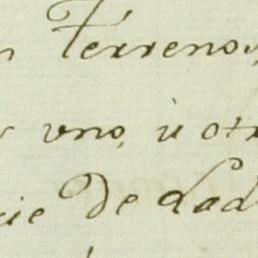 n Terreno,
r vno, ù otr
cie De Lad